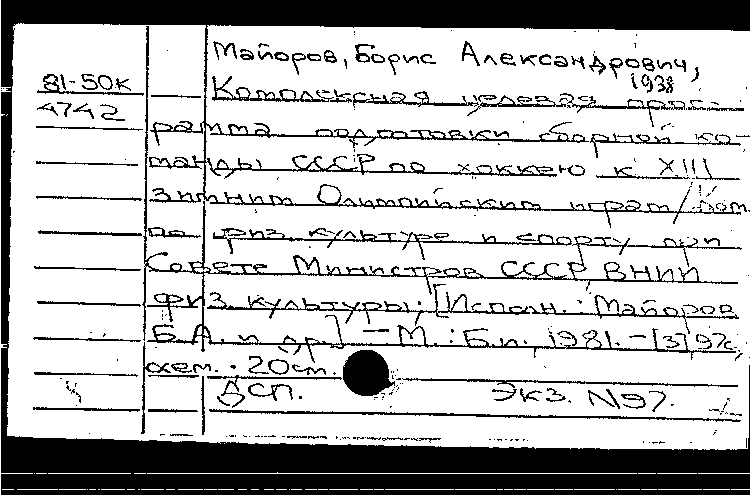 Майоров, Борис Александрович,
1938
81-50к
4742
Комплексная целевая прог-
рамма подготовки сборной ко-
манды СССР по хоккею к XIII
зимним Олимпийским играм / Ком.
по физ. культуре и спорту при
Совете Министров СССР ВНИИ
физ. культуры; [Исполн.: Майоров
Б.А. и др.] – М.: Б.и., 1981. – [3] 97с,
схем. . 20см.
ДСП. Экз. N97.